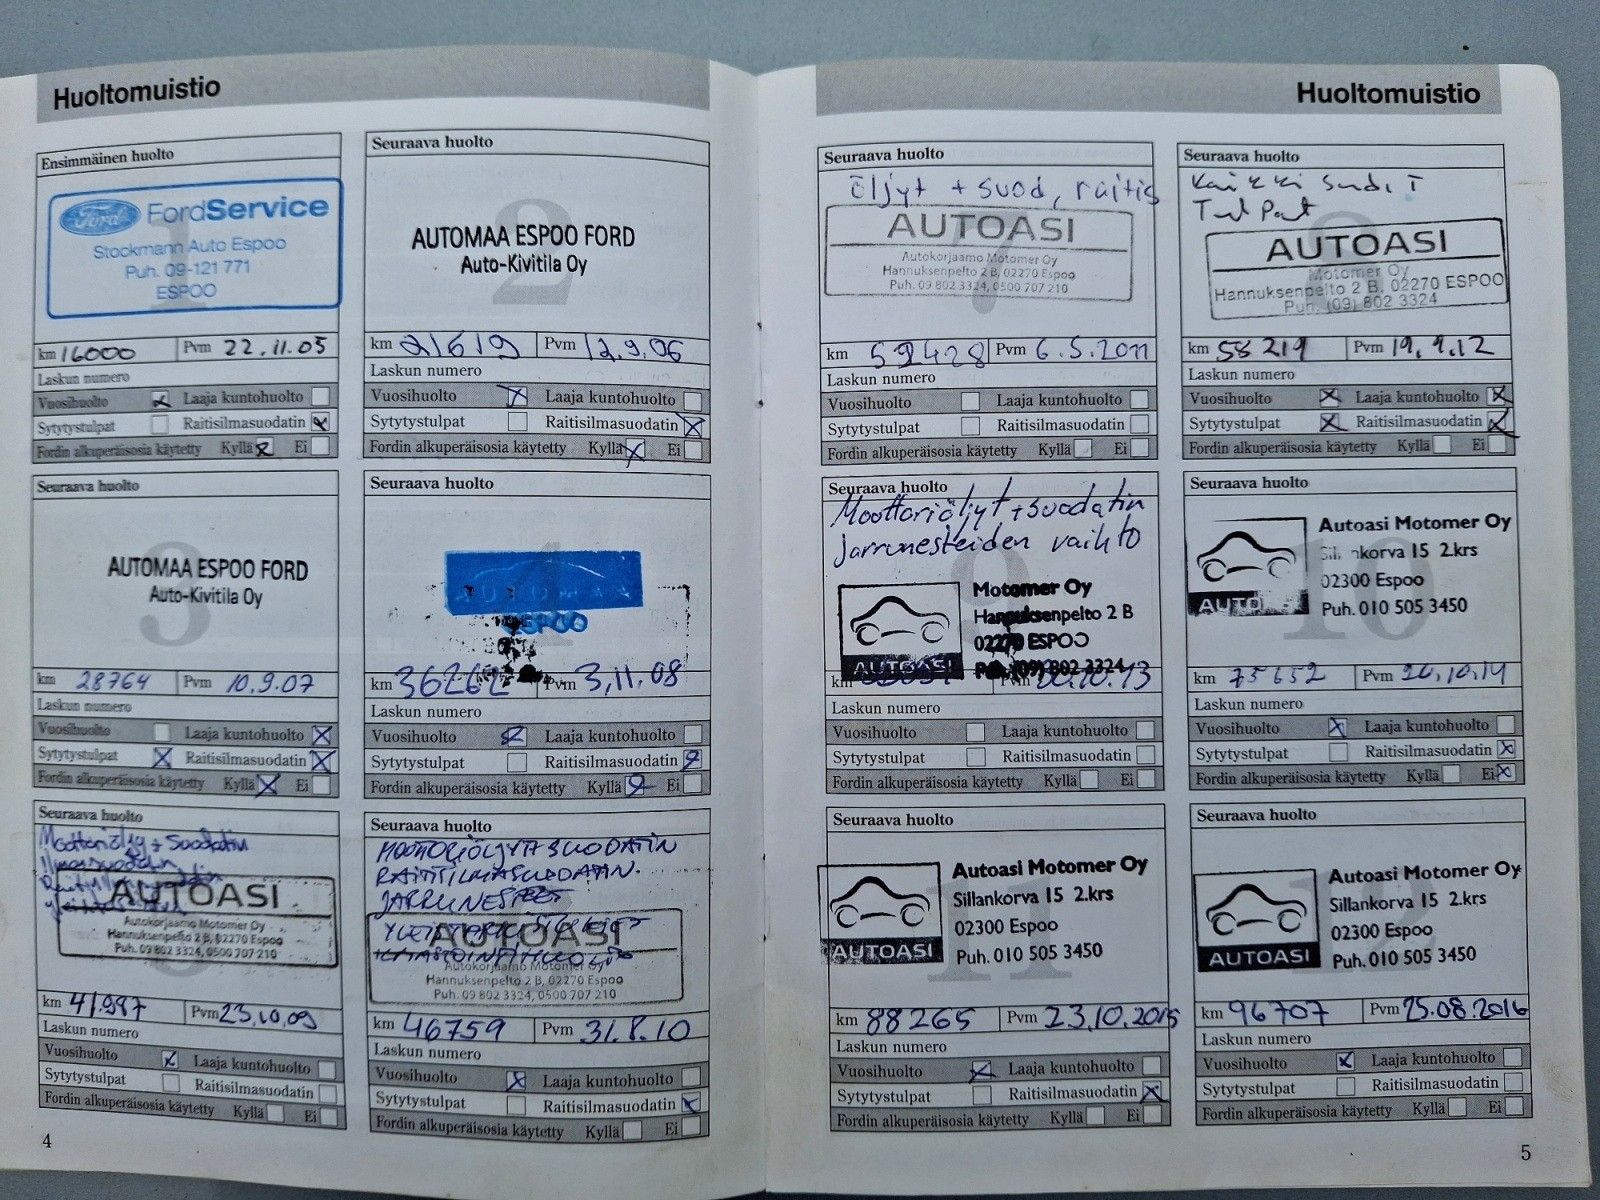 Huoltomuistio
Ensimmäinen huolto
Ford FordService
Stockmann Auto Espoo
Puh. 09-121 771
ESPOO
km 16000 Pvm 22.11.05
Laskun numero
Vuosihuolto Laaja kuntohuolto
Sytytystulpat Raitisilmasuodatin
Fordin alkuperäisosia käytetty Kyllä Ei
Seuraava huolto
2
AUTOMAA ESPOO FORD
Auto-Kivitila Oy
km 21619 Pvm 12.9.06
Laskun numero
Vuosihuolto Laaja kuntohuolto
Sytytystulpat Raitisilmasuodatin
Fordin alkuperäisosia käytetty Kyllä Ei
Seuraava huolto
3
AUTOMAA ESPOO FORD
Auto-Kivitila Oy
km 28764 Pvm 10.9.07
Laskun numero
Vuosihuolto Laaja kuntohuolto
Sytytystulpat Raitisilmasuodatin
Fordin alkuperäisosia käytetty Kyllä Ei
Seuraava huolto
ESPOO
km 36262 Pvm 3.11.08
Laskun numero
Vuosihuolto Laaja kuntohuolto
Sytytystulpat Raitisilmasuodatin
Fordin alkuperäisosia käytetty Kyllä Ei
Seuraava huolto
Moottoriöljy + Suodatin
Ilmansuodatin
AUTOASI
Autokorjaamo Motomer Oy
Hannuksenpelto 2 B, 02270 Espoo
Puh. 09 802 3324, 0500 707 210
km 41.987 Pvm 23.10.09
Laskun numero
Vuosihuolto Laaja kuntohuolto
Sytytystulpat Raitisilmasuodatin
Fordin alkuperäisosia käytetty Kyllä Ei
Seuraava huolto
MOOTTORIÖLJYT+SUODATIN
RAITISILMASUODATIN.
JARRUNESTEET
AUTOASI
Autokorjaamo Motomer Oy
Hannuksenpelto 2 B, 02270 Espoo
Puh. 09 802 3324, 0500 707 210
km 46759 Pvm 31.8.10
Laskun numero
Vuosihuolto Laaja kuntohuolto
Sytytystulpat Raitisilmasuodatin
Fordin alkuperäisosia käytetty Kyllä Ei
4
Huoltomuistio
Seuraava huolto
öljyt + suod, raitis
7
AUTOASI
Autokorjaamo Motomer Oy
Hannuksenpelto 2 B, 02270 Espoo
Puh. 09 802 3324, 0500 707 210
km 52428 Pvm 6.5.2011
Laskun numero
Vuosihuolto Laaja kuntohuolto
Sytytystulpat Raitisilmasuodatin
Fordin alkuperäisosia käytetty Kyllä Ei
Seuraava huolto
Kaikki Suod.
AUTOASI
Motomer Oy
Hannuksenpelto 2 B, 02270 ESPOO
Puh. (09) 802 3324
km 58219 Pvm 19.9.12
Laskun numero
Vuosihuolto Laaja kuntohuolto
Sytytystulpat Raitisilmasuodatin
Fordin alkuperäisosia käytetty Kyllä Ei
Seuraava huolto
Moottoriöljyt + suodatin
jarrunesteiden vaihto
Motomer Oy
Hannuksenpelto 2 B
02270 ESPOO
Puh. (09) 802 3324
AUTOASI
km Pvm 10.13
Laskun numero
Vuosihuolto Laaja kuntohuolto
Sytytystulpat Raitisilmasuodatin
Fordin alkuperäisosia käytetty Kyllä Ei
Seuraava huolto
10
Autoasi Motomer Oy
15 2.krs
02300 Espoo
Puh. 010 505 3450
km 75652 Pvm 10.14
Laskun numero
Vuosihuolto Laaja kuntohuolto
Sytytystulpat Raitisilmasuodatin
Fordin alkuperäisosia käytetty Kyllä Ei
Seuraava huolto
11
Autoasi Motomer Oy
Sillankorva 15 2.krs
02300 Espoo
Puh. 010 505 3450
AUTOASI
km 88265 Pvm 23.10.2015
Laskun numero
Vuosihuolto Laaja kuntohuolto
Sytytystulpat Raitisilmasuodatin
Fordin alkuperäisosia käytetty Kyllä Ei
Seuraava huolto
12
Autoasi Motomer Oy
Sillankorva 15 2.krs
02300 Espoo
Puh. 010 505 3450
AUTOASI
km 96707 Pvm 25.08.2016
Laskun numero
Vuosihuolto Laaja kuntohuolto
Sytytystulpat Raitisilmasuodatin
Fordin alkuperäisosia käytetty Kyllä Ei
5